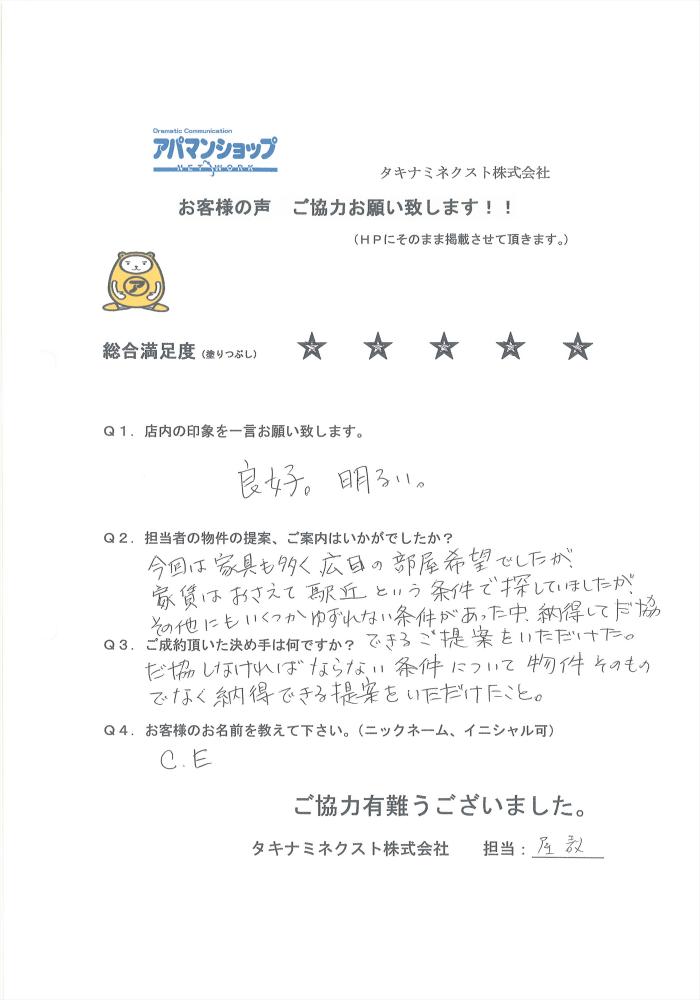 Dramatic Communication
アパマンショップ
NETWORK
タキナミネクスト株式会社
お客様の声 ご協力お願い致します！！
（ＨＰにそのまま掲載させて頂きます。）
ア
総合満足度（塗りつぶし） ☆ ☆ ☆ ☆ ☆
Ｑ１．店内の印象を一言お願い致します。
良好。明るい。
Ｑ２．担当者の物件の提案、ご案内はいかがでしたか？
今回は家具も多く広目の部屋希望でしたが、
家賃はおさえて駅近という条件で探していましたが、
その他にもいくつかゆずれない条件があった中、納得してだ協
できるご提案をいただけた。
Ｑ３．ご成約頂いた決め手は何ですか？
だ協しなければならない条件について物件そのもの
でなく納得できる提案をいただけたこと。
Ｑ４．お客様のお名前を教えて下さい。（ニックネーム、イニシャル可）
C.E
ご協力有難うございました。
タキナミネクスト株式会社 担当：屋敷